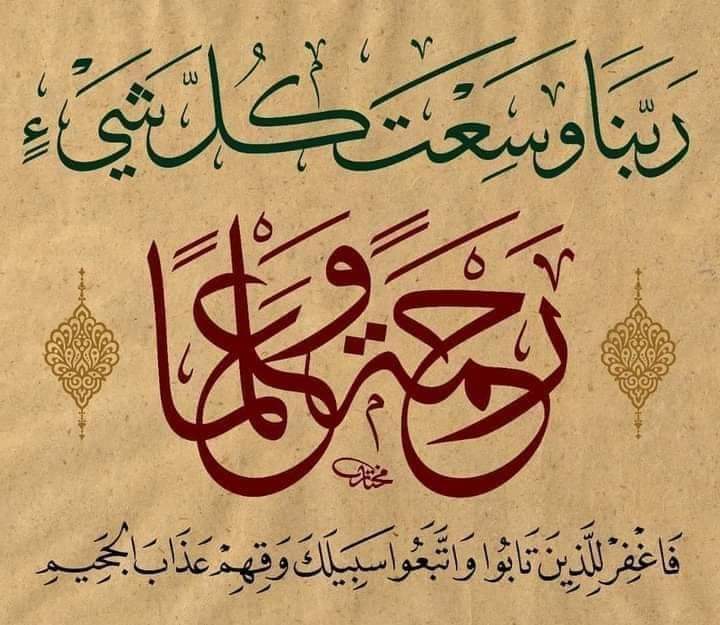 رَبَّنَا وَسِعْتَ كُلَّ شَيْءٍ
رَحْمَةً وَعِلْمًا
مختار
فَاغْفِرْ لِلَّذِينَ تَابُوا وَاتَّبَعُوا سَبِيلَكَ وَقِهِمْ عَذَابَ الْجَحِيمِ